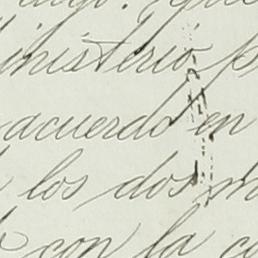 inisterio p
acuerdo en
los dos m
con la co